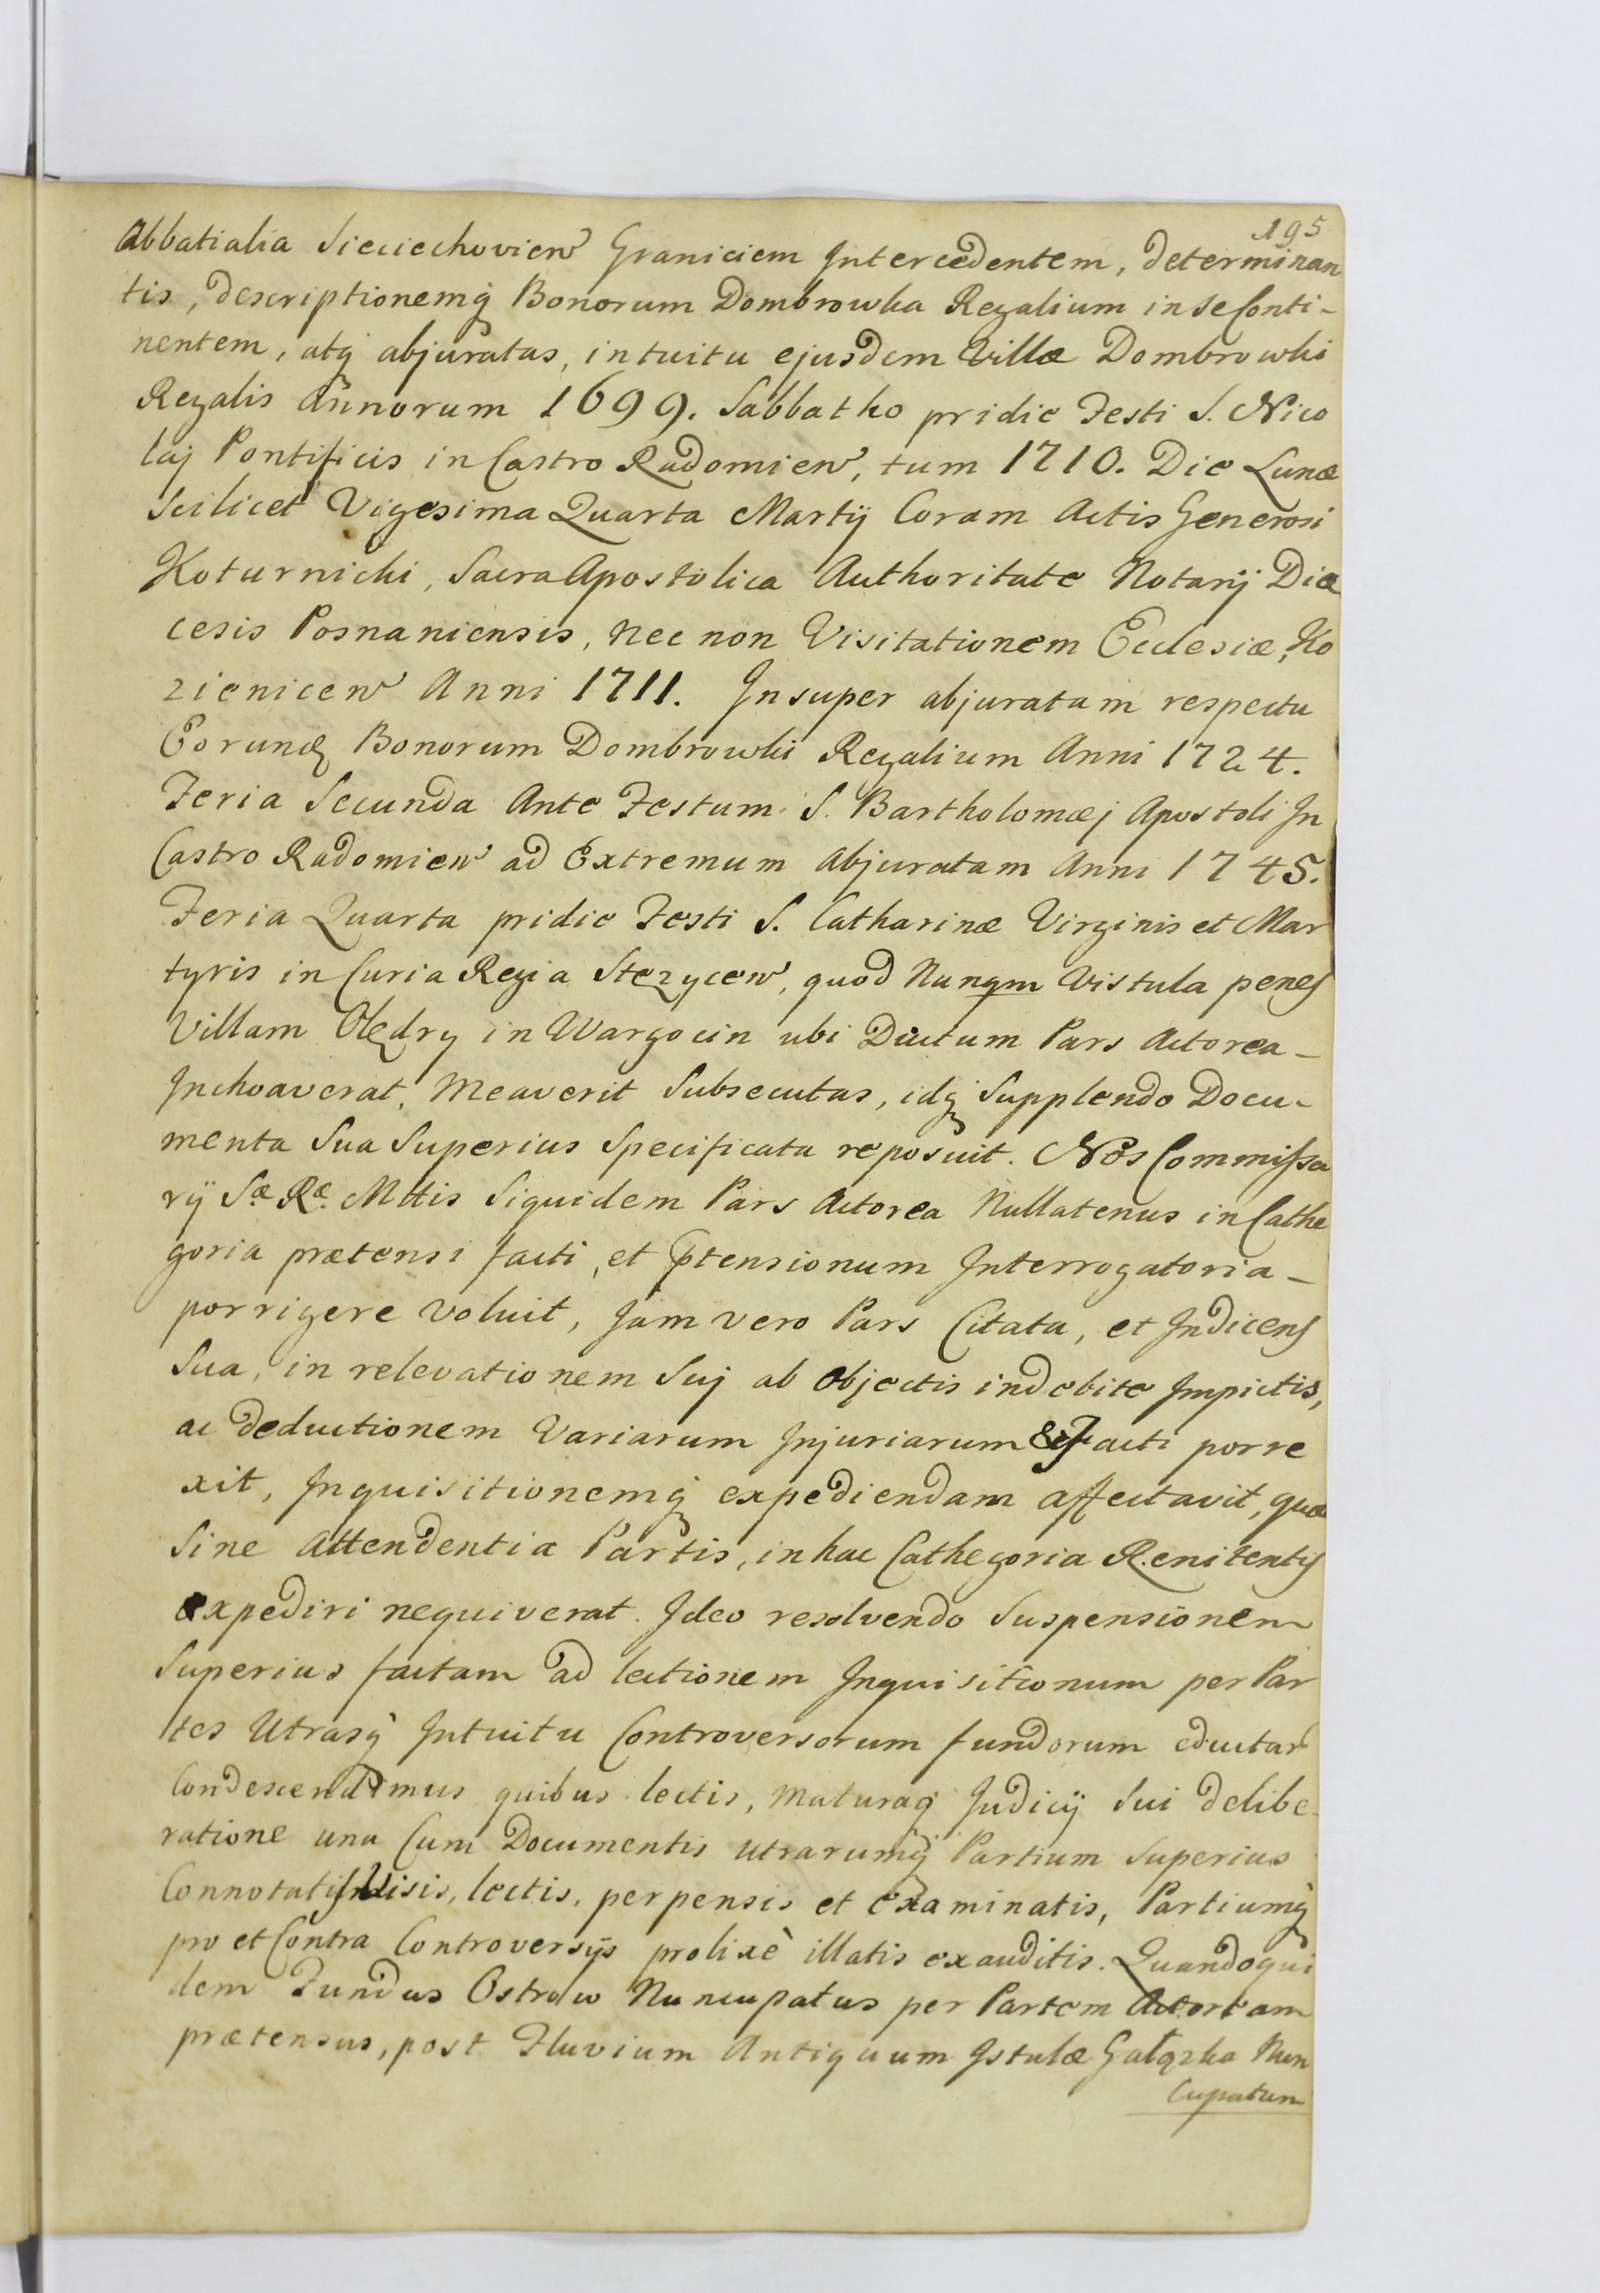 195
Abbatialia Sieciechovien Graniciem Intercedentem, determinan
tis, descriptionemq Bonorum Dombrowka Regalium in se Conti-
nentem, atq abjuratas, intuitu ejusdem Villæ Dombrowki
Regalis Annorum 1699. Sabbatho pridie Festi S. Nico
laj Pontificis in Castro Radomien, tum 1710. Die Lunæ
Scilicet Vigesima Quarta Martij Coram Actis Generosi
Koturnicki, Sacra Apostolica Authoritate Notarij Diæ
cesis Posnaniensis, nec non Visitationem Ecclesiæ Ko
zienicen Anni 1711. Insuper abjuratam respectu
Eorund Bonorum Dombrowki Regalium Anni 1724.
Feria Secunda Ante Festum S. Bartholomæj Apostoli In
Castro Radomien ad Extremum abjuratam Anni 1745.
Feria Quarta pridie Festi S. Catharinæ Virginis et Mar
tyris in Curia Regia Stezycen, quod Nunqm Vistula penes
Villam Olędry in Wargocin ubi Ductum Pars Actorea-
Inchoaverat, Meaverit Subsecutas, idq Supplendo Docu-
menta Sua Superius Specificata reposuit. Nos Commissa
rij Sæ Ræ Mttis Siquidem Pars Actorea Nullatenus in Cathe
goria prætensi facti, et ptensionum Interrogatoria-
porrigere voluit, Jam vero Pars Citata, et Indicens
Sua, in relevationem Suj ab Objectis indebite Impictis,
ac deductionem Variarum Injuriarum & Facti porre
xit, Inquisitionemq expediendam affectavit, quæ
Sine Attendentia Partis, in hac Cathegoria Renitentis
expediri nequiverat. Ideo resolvendo Suspensionem
Superius factam ad lectionem Inquisitionum per Par
tes Utrasq Intuitu Controversorum fundorum eductar
Condescendimus quibus lectis, Maturaq Judicij Sui delibe
ratione una Cum Documentis utrarumq Partium Superius
Connotatis Visis, lectis, perpensis et examinatis, Partiumq
pro et Contra Controversijs prolixè illatis exauditis. Quandoqui
dem Fundus Ostrow Nuncupatus per Partem Actoream
prætensus, post Fluvium Antiquum Istulæ Gałązka Nun
Cupatum